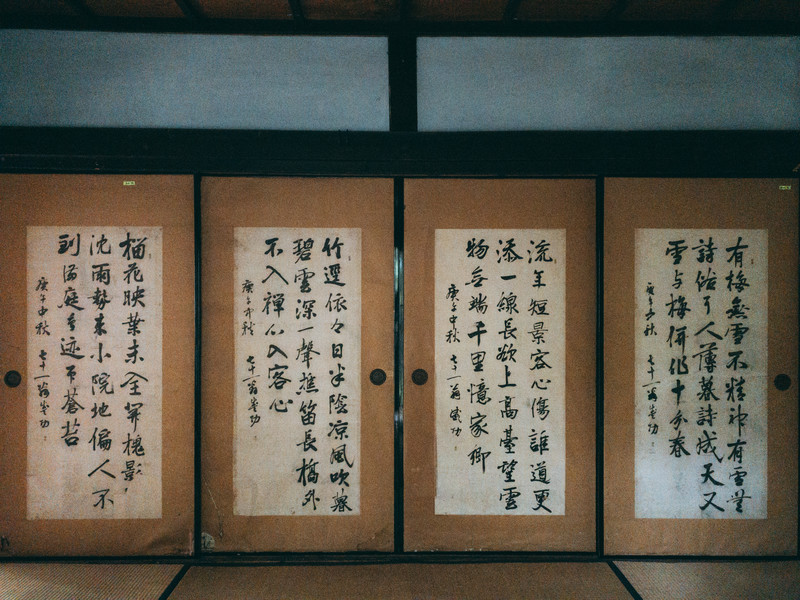 有梅無雪不精神有雪無
詩俗了人薄暮詩成天又
雪与梅併作十分春
庚子中秋 七十一翁
流年短景客心傷誰道更
添一線長欲上高臺望雲
物無端千里憶家鄉
庚子中秋 七十一翁
竹逕依々日半陰凉風吹暮
碧雲深一聲樵笛長橋外
不入禅心入客心
庚子中秋 七十一翁
榴花映葉未全開槐影
沈雨勢来小院地偏人不
到満庭鳥迹印蒼苔
庚子中秋 七十一翁